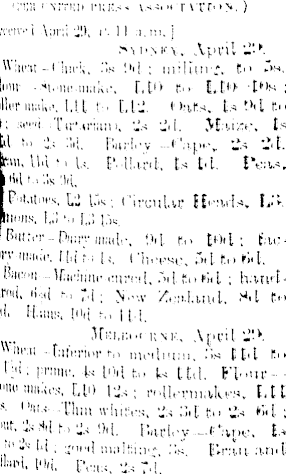 (PER UNITED PRESS ASSOCIATION.)
April 29, 11 a.m.]
SYDNEY, April 29.
Wheat—Chick, 3s 9d; milling, to 5s.
Stone-made, L10 to L10 10s;
roller made, L11 to L12. Oats, 1s 9d to
seed Tartarian, 2s 2d. Maize, 1s
to 2s 3d. Barley—Cape, 2s 2d.
Bran, 11d to 1s. Pollard, 1s 1d. Peas,
6d to 3s 9d.
Potatoes, L2 15s; Circular Heads, L3.
Onions, L3 to L3 15s.
Butter—Dairy made, 9d to 10d; fac-
tory made, 11d to 1s. Cheese, 5d to 6d.
Bacon—Machine cured, 5d to 6d; hand-
cured, 6½d to 7d; New Zealand, 8d to
Hams, 10d to 11d.
MELBOURNE, April 29.
Wheat—Inferior to medium, 3s 11d to
prime, 4s 10d to 4s 11d. Flour—
Stone makes, L10 12s; rollermakes, L11
Oats—Thin whites, 2s 3d to 2s 6d;
stout, 2s 8d to 2s 9d. Barley—Cape, 1s
to 2s 1d; good malting, 5s. Bran and
pollard, 10d. Peas, 2s 7d.